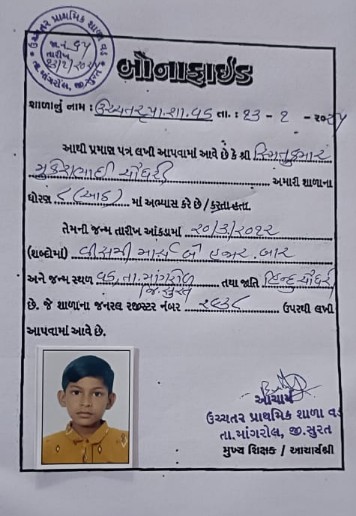 ઉચ્ચતર પ્રાથમિક શાળા વડ
તારીખ
તા.માંગરોલ, જી.સુરત
બોનાફાઈડ
શાળાનું નામ : ઉચ્ચતર પ્રા. શા. વડ તા. : ૨૩ - ૧ - ૨૦૨૫
આથી પ્રમાણ પત્ર લખી આપવામાં આવે છે કે શ્રી સ્મિતકુમાર
મુકેશભાઈ ચૌધરી અમારી શાળાના
ધોરણ ૮ (આઠ) માં અભ્યાસ કરે છે / કરતા હતા.
તેમની જન્મ તારીખ આંકડામાં ૨૦/૩/૨૦૧૨
(શબ્દોમાં) વીસમી માર્ચ બે હજાર બાર
અને જન્મ સ્થળ વડ, તા. માંગરોળ જિ. સુરત તથા જાતિ હિન્દુ ચૌધરી
છે. જે શાળાના જનરલ રજીસ્ટર નંબર ૨૬૩૮ ઉપરથી લખી
આપવામાં આવે છે.
આચાર્ય
ઉચ્ચતર પ્રાથમિક શાળા વડ
તા.માંગરોલ, જી.સુરત
મુખ્ય શિક્ષક / આચાર્યશ્રી